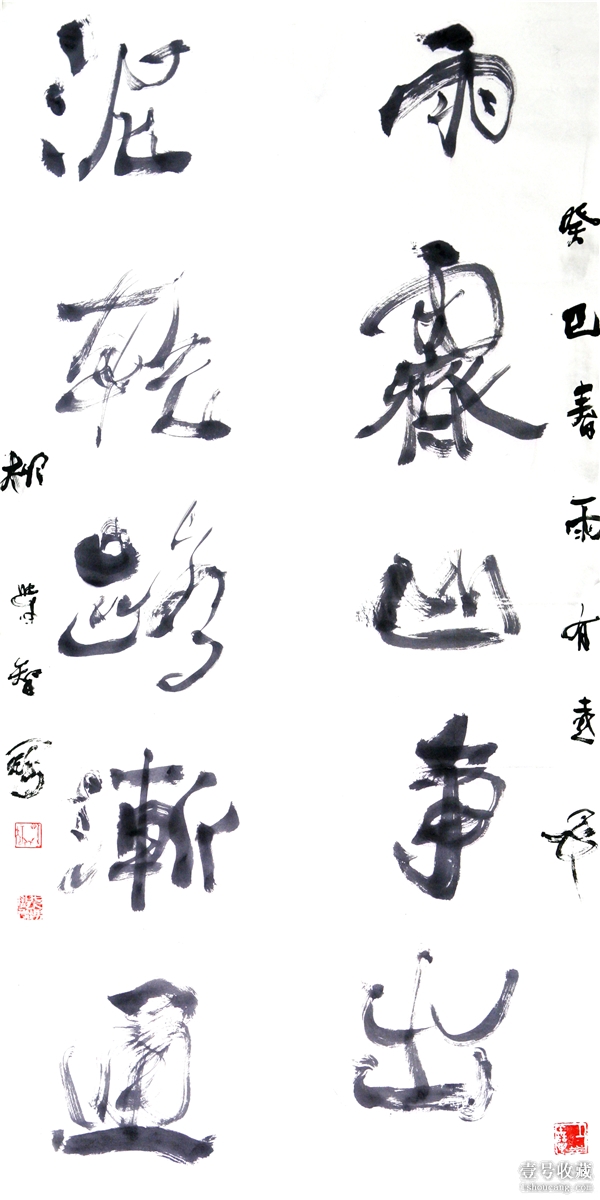 癸巳春雨有
雨霽山争出
泥乾路漸通
柳 智
壹号收藏
1shoucang.com